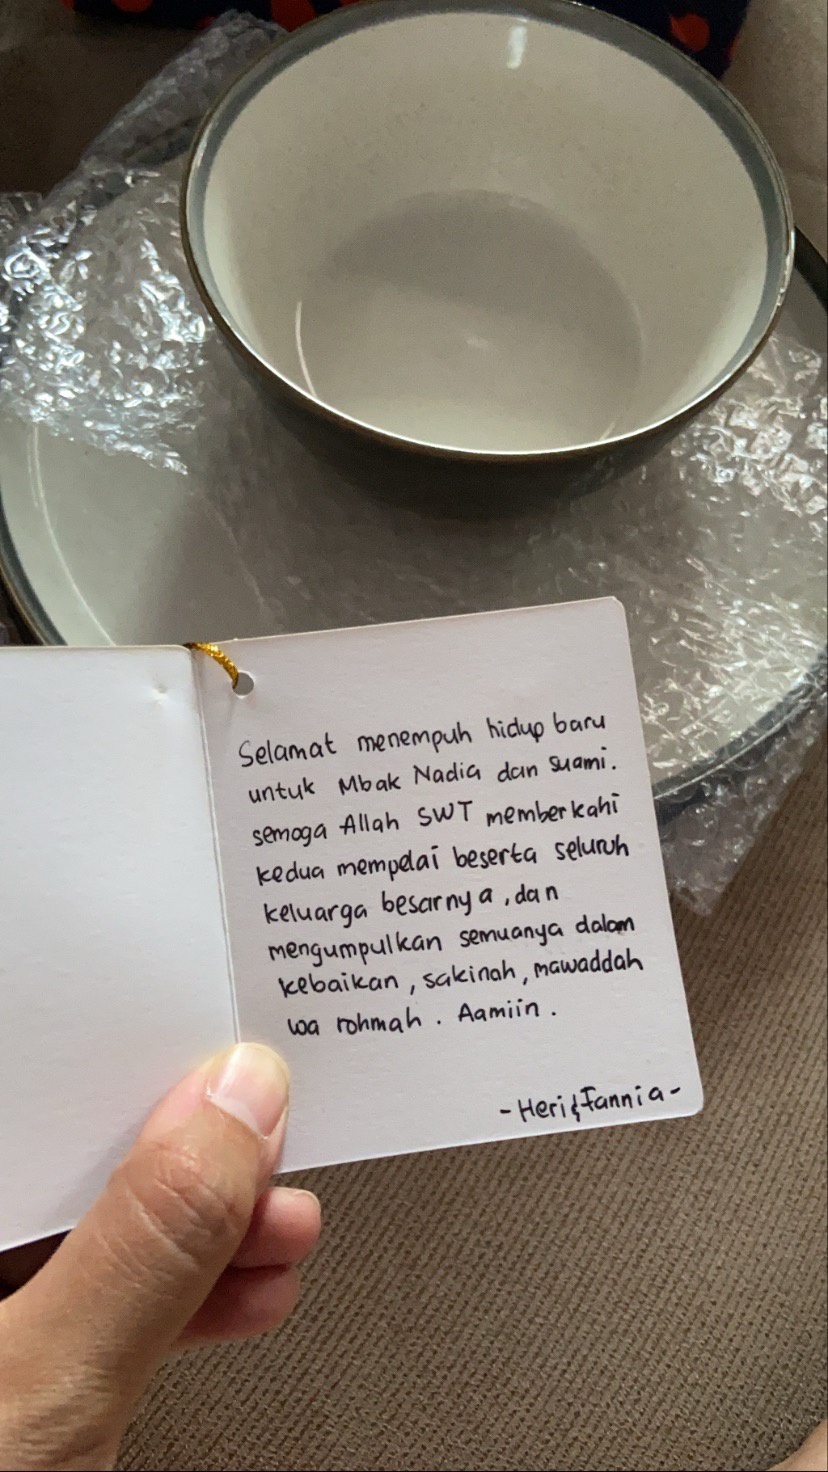 Selamat menempuh hidup baru
untuk Mbak Nadia dan suami.
semoga Allah SWT memberkahi
kedua mempelai beserta seluruh
keluarga besarnya, dan
mengumpulkan semuanya dalam
kebaikan, sakinah, mawaddah
wa rohmah. Aamiin.
-Heri & Fannia-